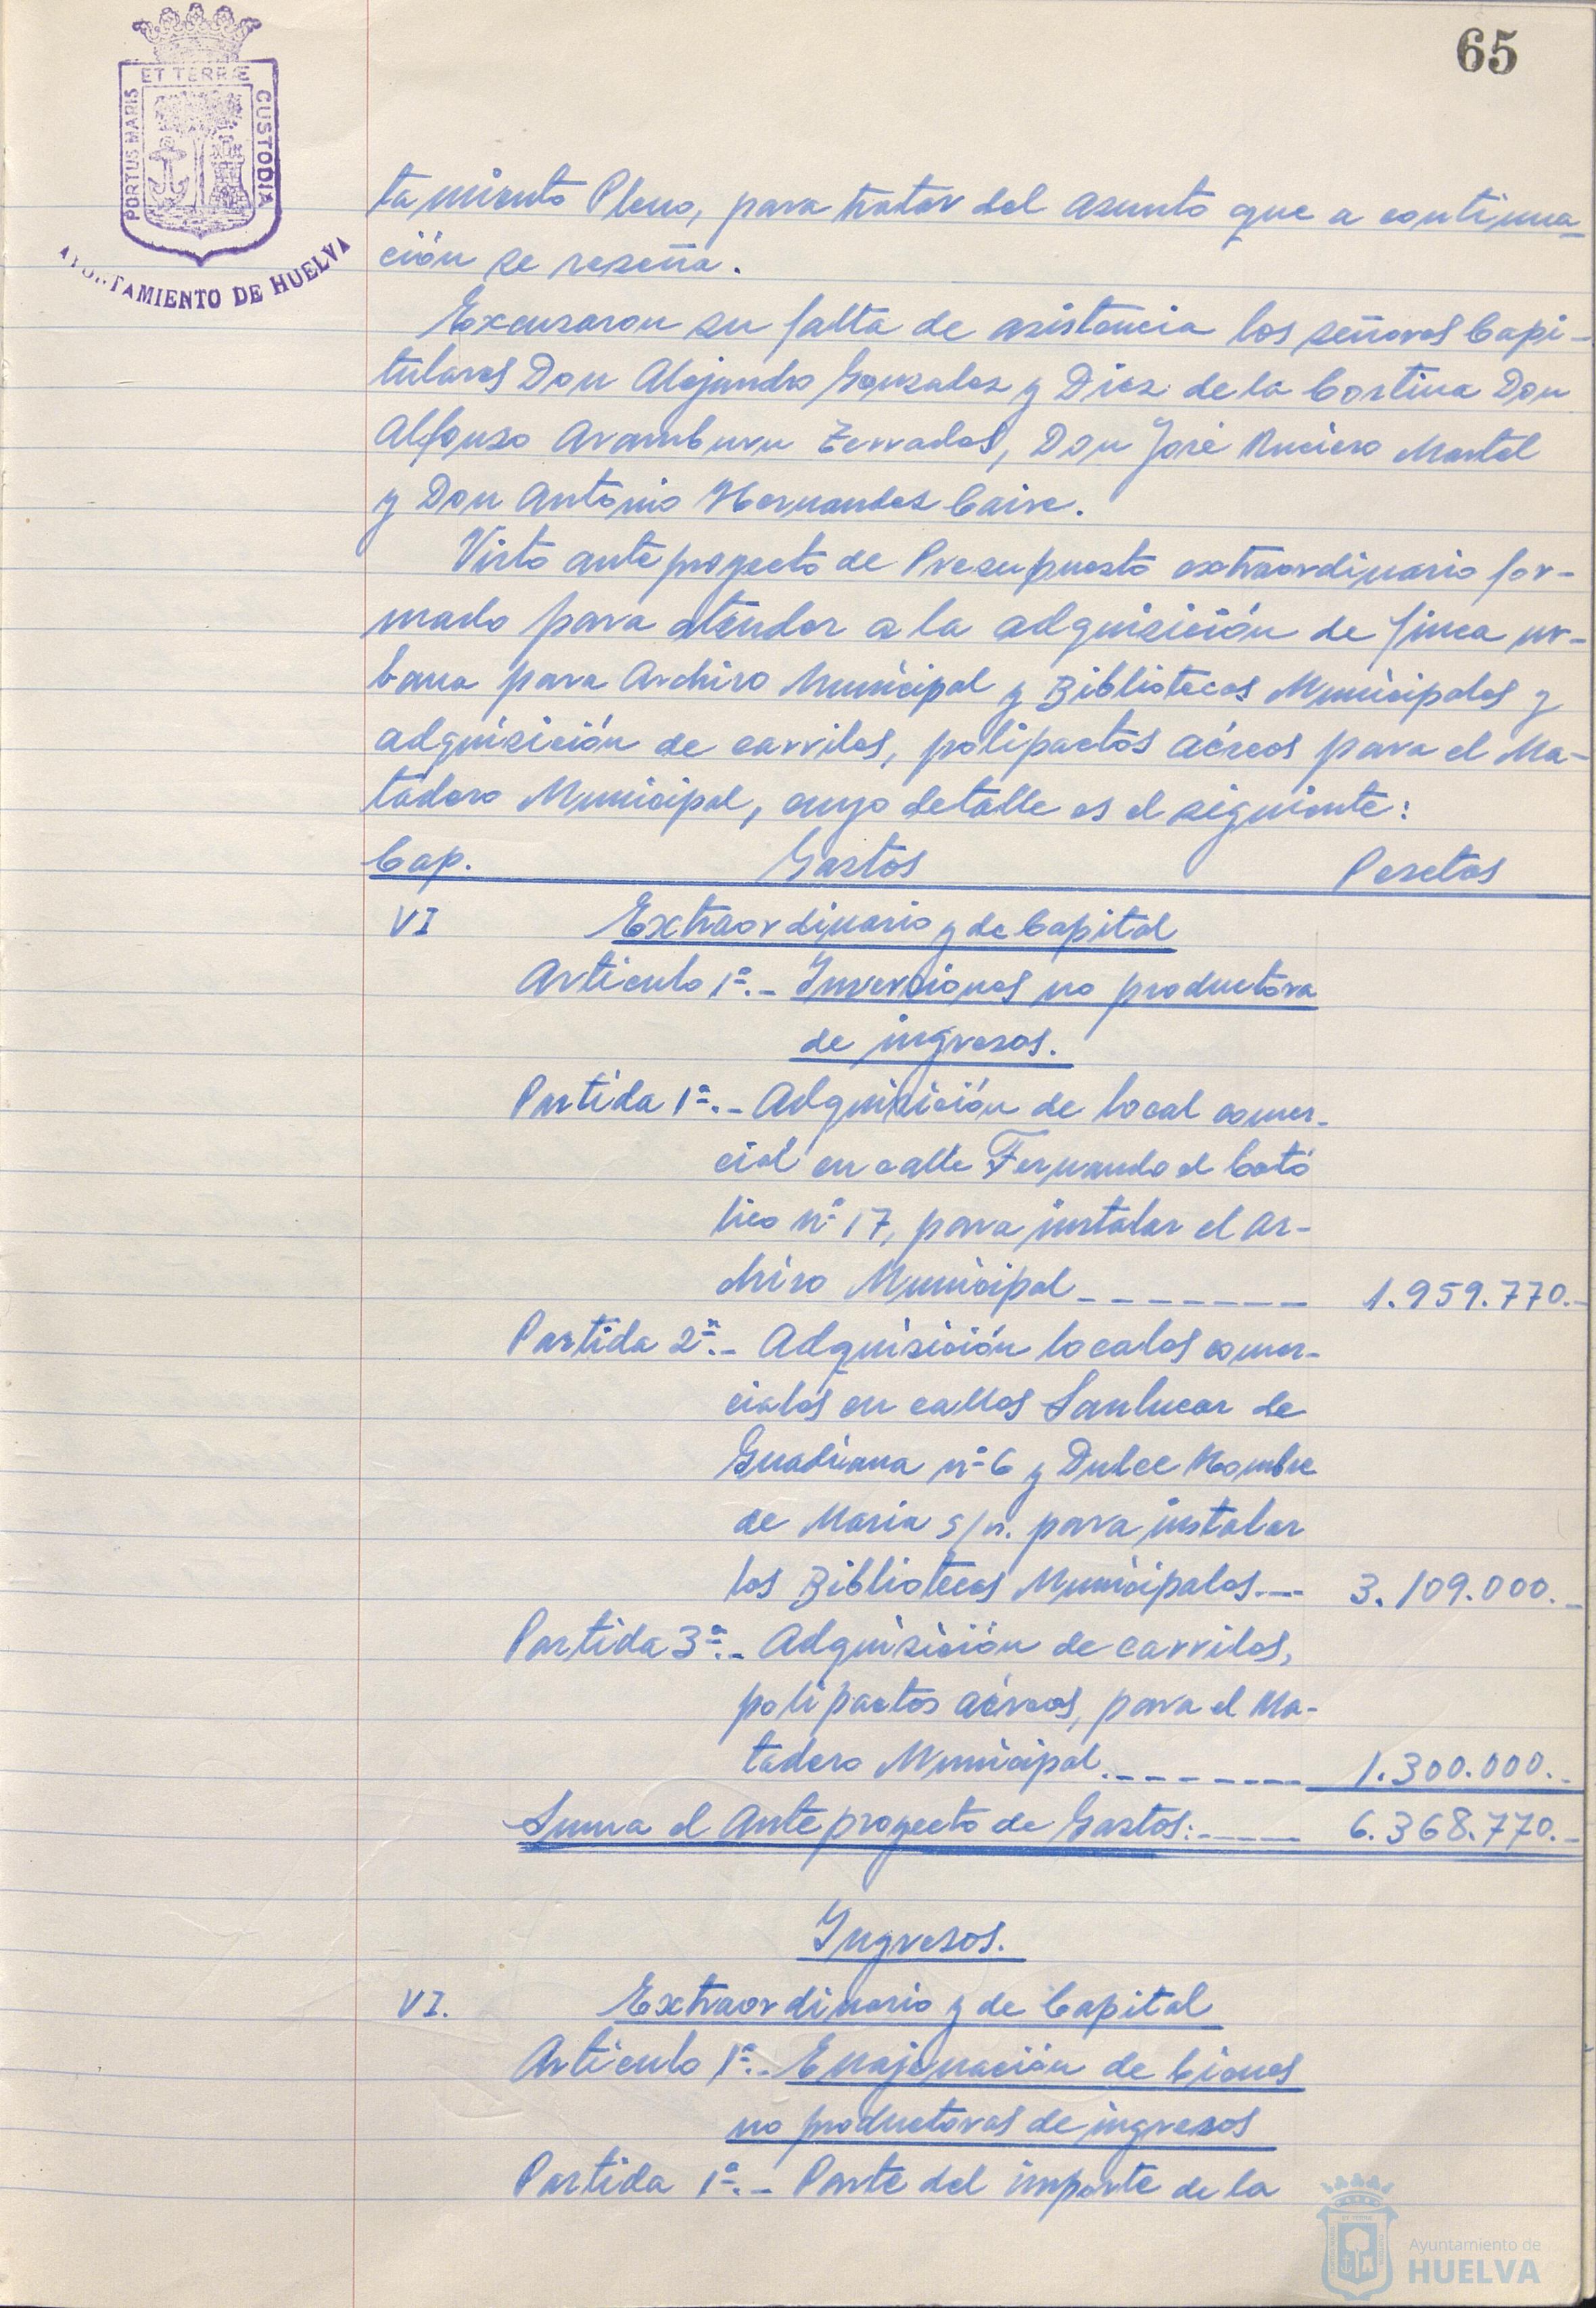 65
PORTUS MARIS
ET TERRÆ
CUSTODIA
AYUNTAMIENTO DE HUELVA
tamiento Pleno, para tratar del asunto que a continua-
ción se reseña.
Excusaron su falta de asistencia los señores Capi-
tulares Don Alejandro Gonzalez y Diez de la Cortina Don
Alfonso Aramburu Terrades, Don José Ruciero Martel
y Don Antonio Hernandez Caire.
Visto anteproyecto de Presupuesto extraordinario for-
mado para atender a la adquisición de finca ur-
bana para Archivo Municipal y Bibliotecas Municipales y
adquisición de carriles, polipactos aéreos para el Ma-
tadero Municipal, cuyo detalle es el siguiente:
Cap. Gastos Pesetas
VI Extraordinario y de Capital
Articulo 1º.- Inversiones no productora
de ingresos.
Partida 1ª.- Adquisición de local comer-
cial en calle Fernando el Cató
lico nº 17, para instalar el Ar-
chivo Municipal ------- 1.959.770.-
Partida 2ª.- Adquisición locales comer-
ciales en calles Sanlucar de
Guadiana nº 6 y Dulce Nombre
de Maria s/n. para instalar
las Bibliotecas Municipales.--- 3.109.000.-
Partida 3ª.- Adquisición de carriles,
polipactos aéreos, para el Ma-
tadero Municipal.------- 1.300.000.-
Suma el Anteproyecto de Gastos:---- 6.368.770.-
Ingresos.
VI. Extraordinario y de Capital
Articulo 1º.- Enajenación de bienes
no productoras de ingresos
Partida 1ª.- Parte del importe de la
Ayuntamiento de
HUELVA